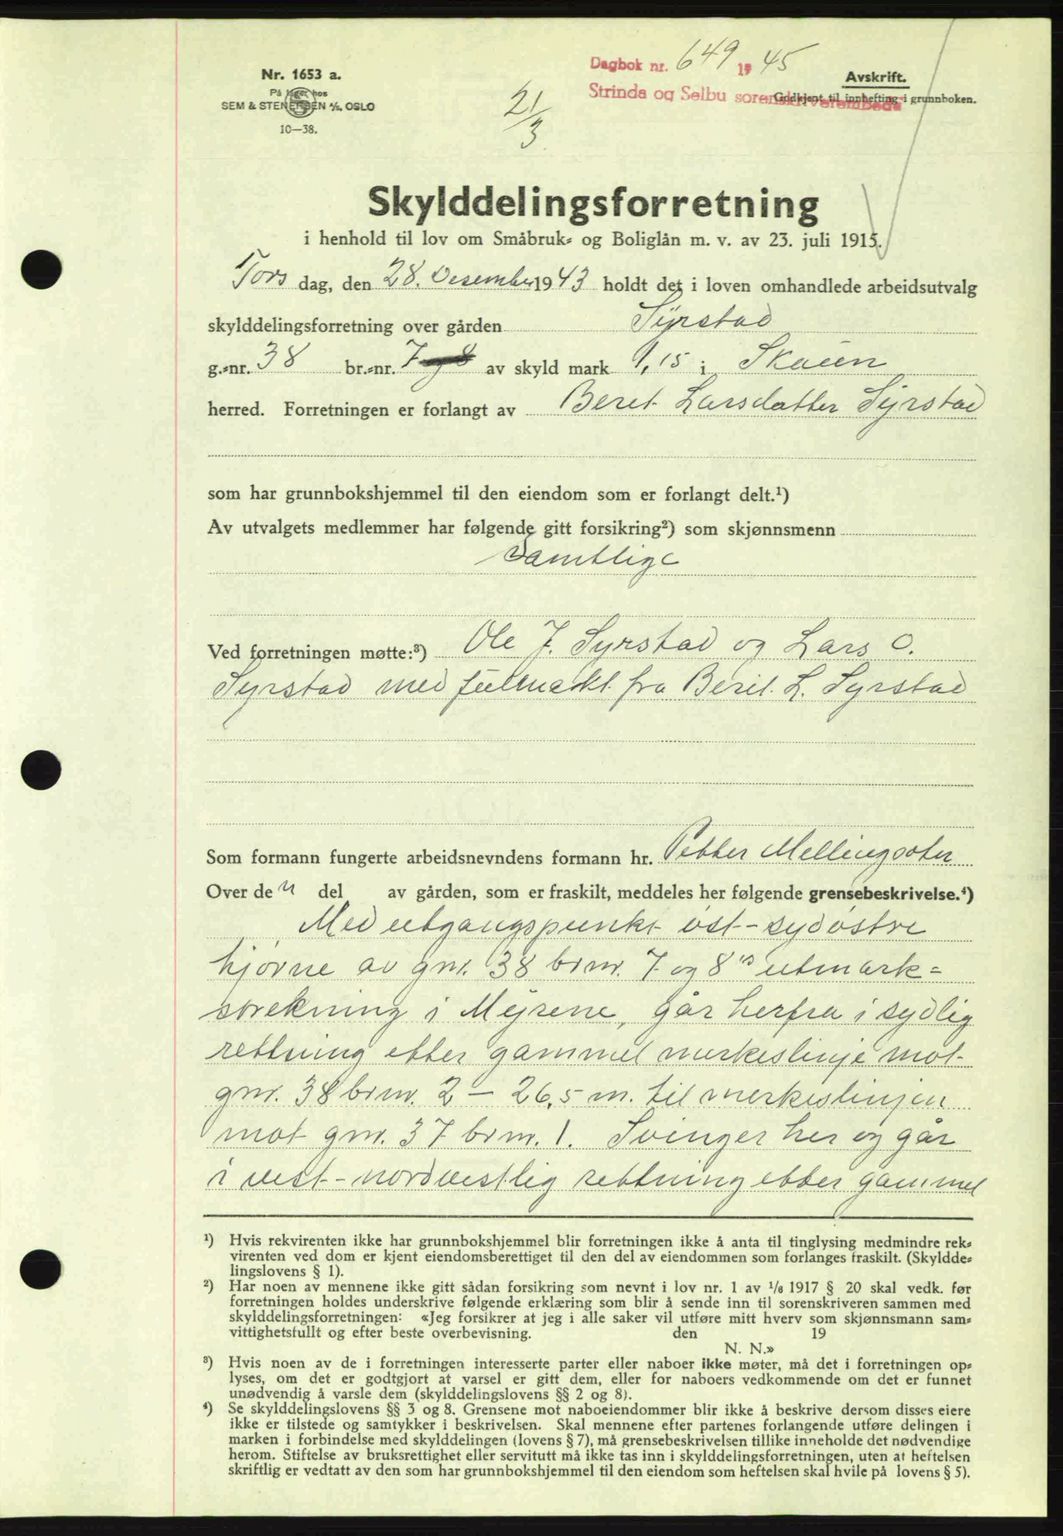 Nr. 1653 a.
På lager hos
SEM & STENERSEN A/S, OSLO
10—38.
2 1/3
Dagbok nr. 649 1945
Strinda og Selbu sorenskriverembede
Avskrift.
Godkjent til innhefting i grunnboken.
Skylddelingsforretning
i henhold til lov om Småbruk= og Boliglån m. v. av 23. juli 1915.
Tors dag, den 28. Desember 1943 holdt det i loven omhandlede arbeidsutvalg
skylddelingsforretning over gården Syrstad
g.=nr. 38 br.=nr. 7 av skyld mark 1,15 i Skaun
herred. Forretningen er forlangt av Beret Larsdatter Syrstad
som har grunnbokshjemmel til den eiendom som er forlangt delt.¹)
Av utvalgets medlemmer har følgende gitt forsikring²) som skjønnsmenn
Samtlige
Ved forretningen møtte:³) Ole J. Syrstad og Lars O.
Syrstad med fullmakt fra Berit L. Syrstad
Som formann fungerte arbeidsnevndens formann hr. Petter Mellingsæter
Over den del av gården, som er fraskilt, meddeles her følgende grensebeskrivelse.⁴)
Med utgangspunkt øst-sydøstre
hjørne av gnr. 38 brnr. 7 og 8ns utmark=
strekning i Myrene, går herfra i sydlig
rettning etter gammel merkeslinje mot
gnr. 38 brnr. 2 — 26,5 m. til merkeslinjen
mot gnr. 37 brnr. 1. Svinger her og går
i vest-nordvestlig rettning etter gammel
¹) Hvis rekvirenten ikke har grunnbokshjemmel blir forretningen ikke å anta til tinglysing medmindre rek=
virenten ved dom er kjent eiendomsberettiget til den del av eiendommen som forlanges fraskilt. (Skyldde=
lingslovens § 1).
²) Har noen av mennene ikke gitt sådan forsikring som nevnt i lov nr. 1 av 1/6 1917 § 20 skal vedk. før
forretningen holdes underskrive følgende erklæring som blir å sende inn til sorenskriveren sammen med
skylddelingsforretningen: «Jeg forsikrer at jeg i alle saker vil utføre mitt hverv som skjønnsmann sam=
vittighetsfullt og efter beste overbevisning. den 19
N. N.»
³) Hvis noen av de i forretningen interesserte parter eller naboer ikke møter, må det i forretningen op=
lyses, om det er godtgjort at varsel er gitt dem, eller for naboers vedkommende om det er funnet
unødvendig å varsle dem (skylddelingslovens §§ 2 og 8).
⁴) Se skylddelingslovens §§ 3 og 8. Grensene mot naboeiendommer blir ikke å beskrive dersom disses eiere
ikke er tilstede og samtykker i beskrivelsen. Skal mennene efter partenes forlangende utføre delingen i
marken i forbindelse med skylddelingen (lovens § 7), må grensebeskrivelsen tillike inneholde det nødvendige
herom. Stiftelse av bruksrettighet eller servitutt må ikke tas inn i skylddelingsforretningen, uten at heftelsen
skriftlig er vedtatt av den som har grunnbokshjemmel til den eiendom som heftelsen skal hvile på lovens § 5).